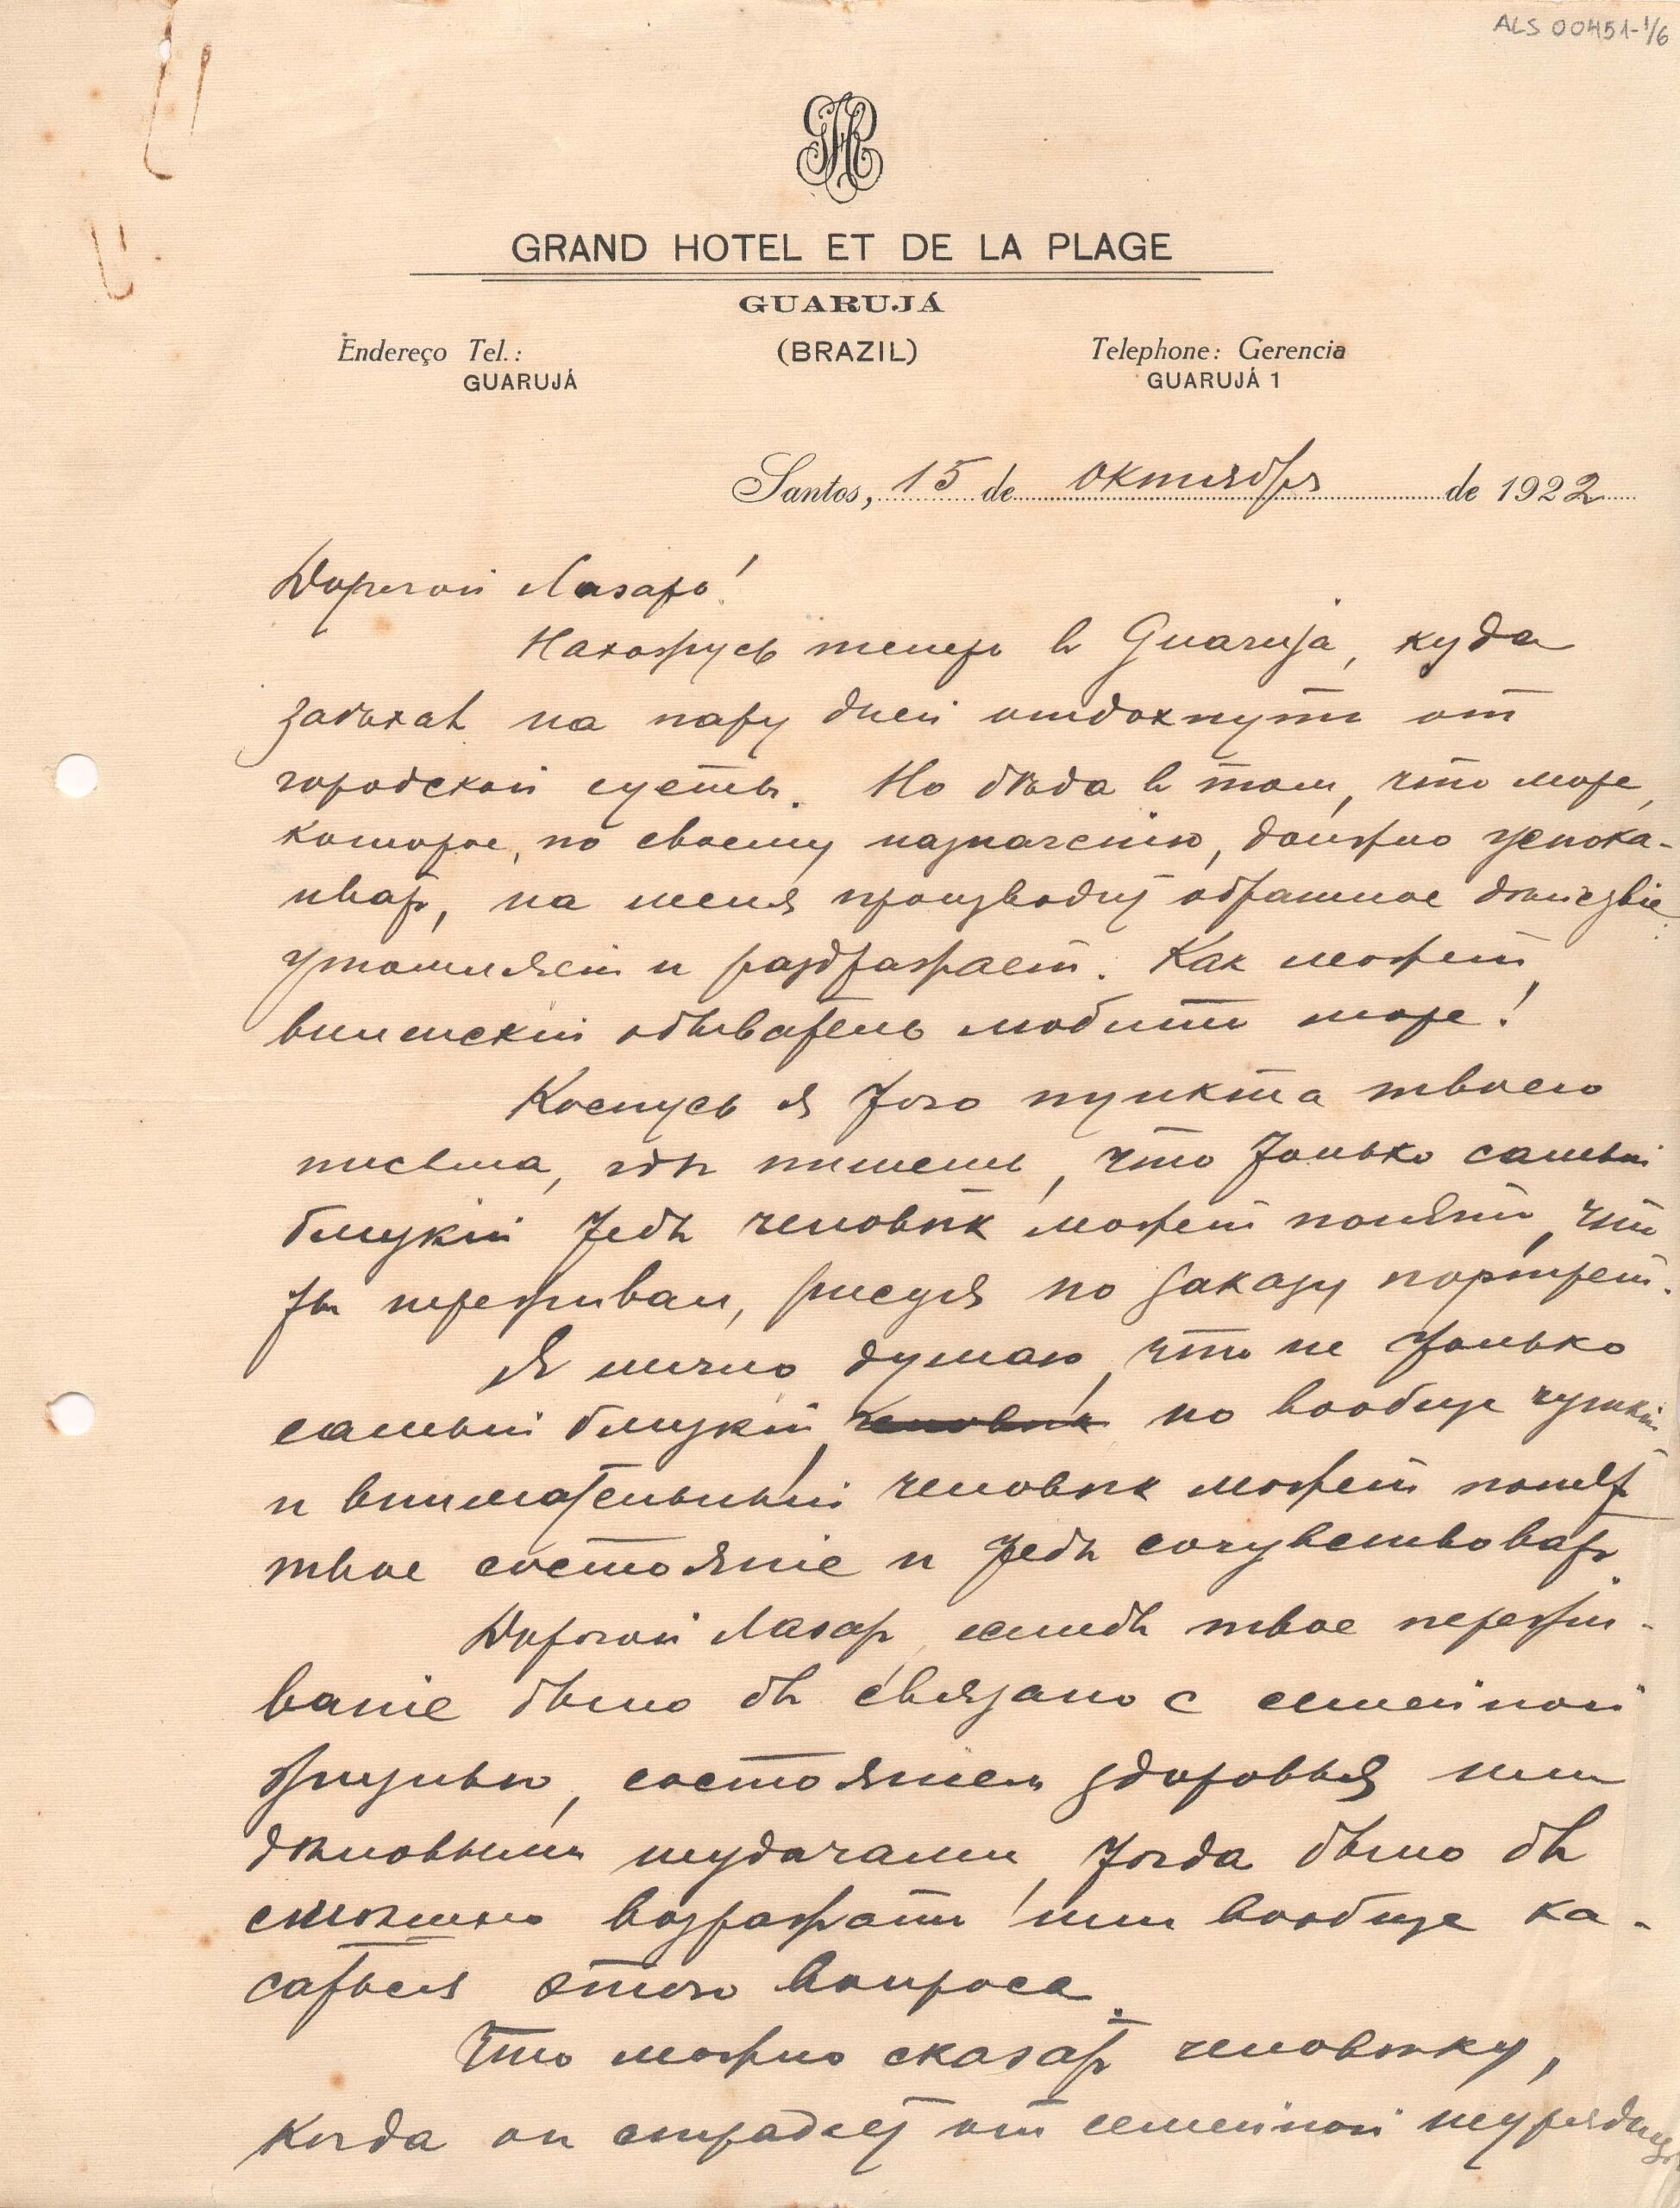 ALS 00451-1/6
GRAND HOTEL ET DE LA PLAGE
GUARUJÁ
Endereço Tel.: (BRAZIL) Telephone: Gerencia
GUARUJÁ GUARUJÁ 1
Santos, 15 de октября de 1922
Дорогой Лазарь!
Нахожусь теперь в Guaruja, куда
заѣхал на пару дней отдохнуть от
городской суеты. Но бѣда в том, что море,
которое, по своему назначенію, должно успока-
ивать, на меня производит обратное дѣйствіе
утомляет и раздражает. Как может
виленскій обыватель любить море!
Коснусь я того пункта твоего
письма, гдѣ пишешь, что только самый
близкій тебѣ человѣк может понять, что
ты переживал, рисуя по заказу портрет.
Я лично думаю, что не только
самый близкій, человѣк но вообще чуткій
и внимательный человѣк может понять
твое состояніе и тебѣ сочувствовать.
Дорогой Лазарь, еслибы твое пережи-
ваніе было бы связано с семейной
жизнью, состояніем здоровья или
дѣловыми неудачами, тогда было бы
возражать или вообще ка-
саться этого вопроса.
Что можно сказать человѣку,
когда он страдает от семейной